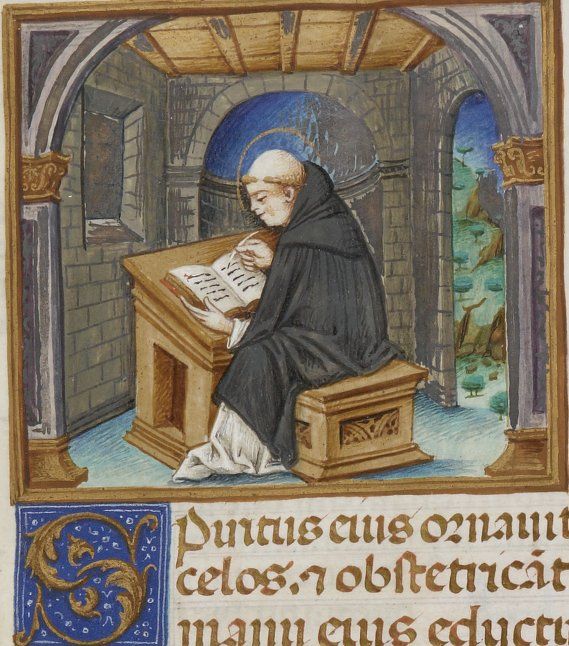 Spiritus eius ornauit
celos. ⁊ obstetricāt
manu eius eductu